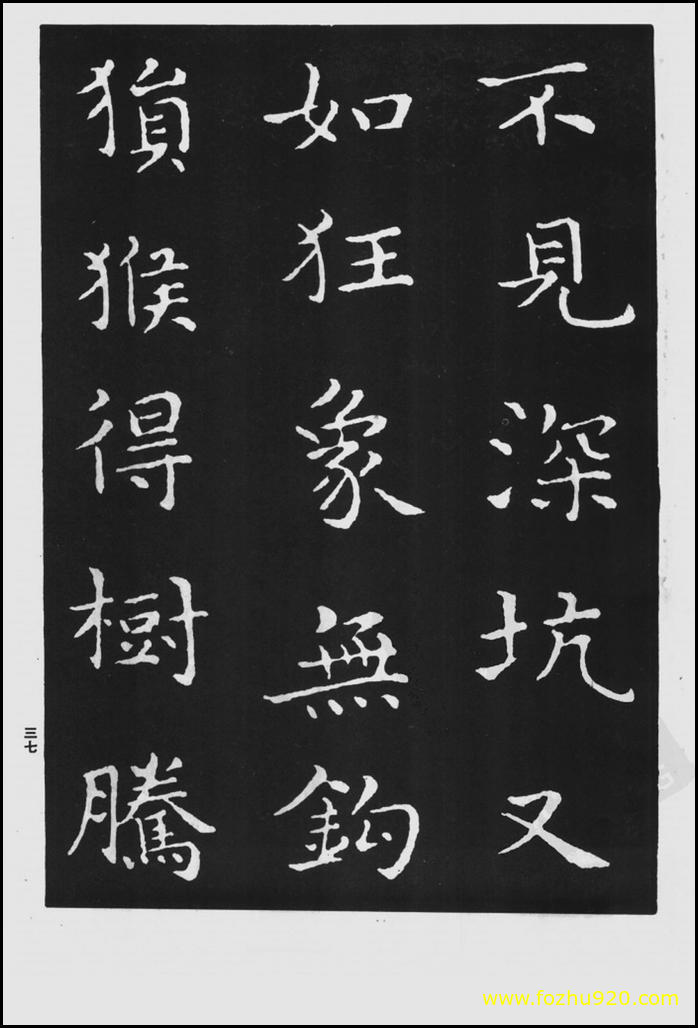 不見深坑又
如狂象無鈎
猿猴得樹騰
三七
www.fozhu920.com